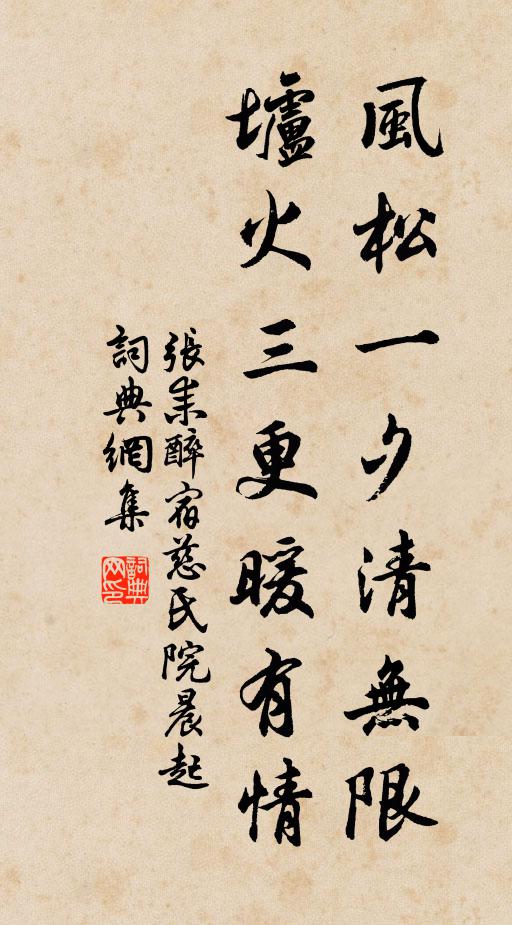 風松一夕清無限
壚火三更暖有情
張耒醉宿慈氏院晨起
詞典網集
詞典
网印